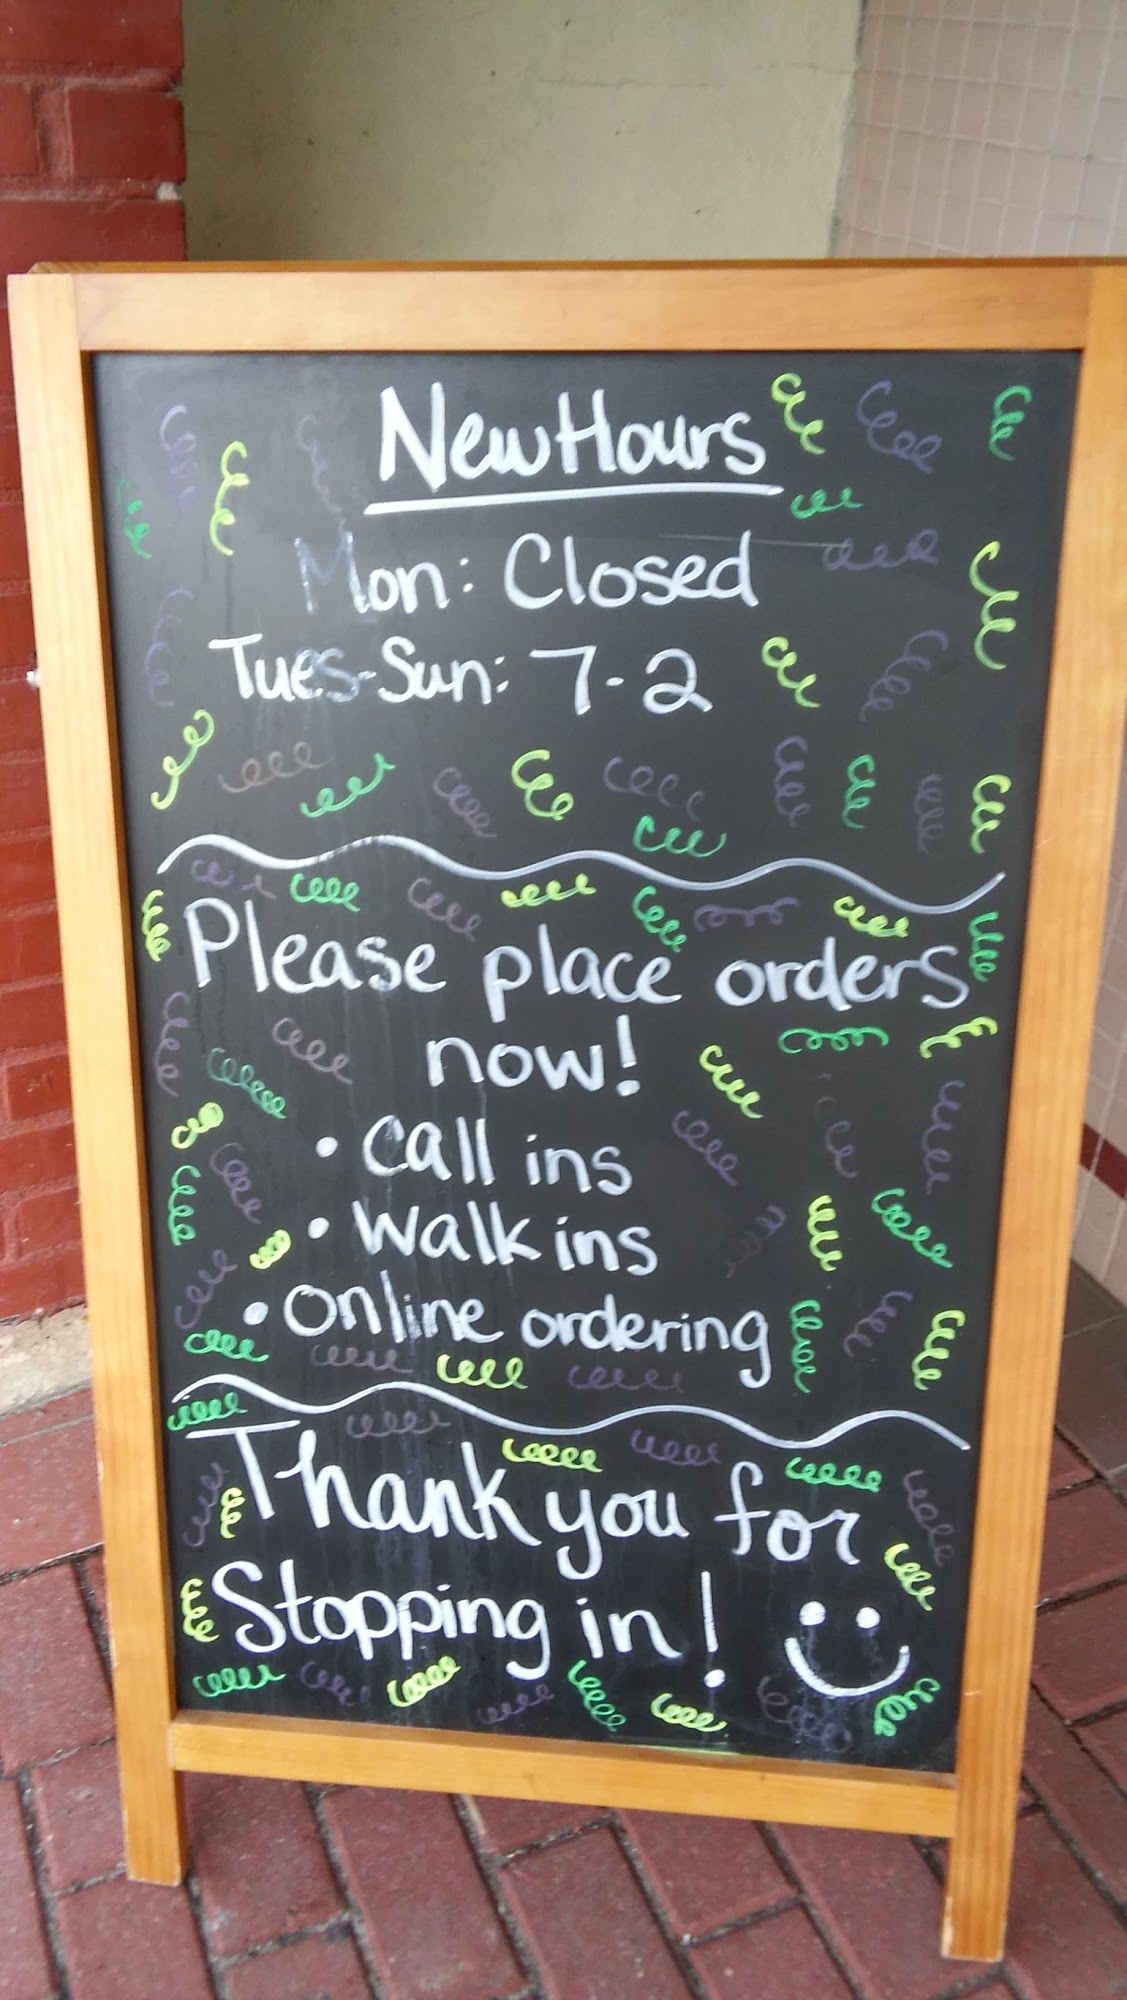 New Hours
Mon: Closed
Tues-Sun: 7-2
Please place orders
now!
• Call ins
• Walk ins
• Online ordering
Thank you for
Stopping in!